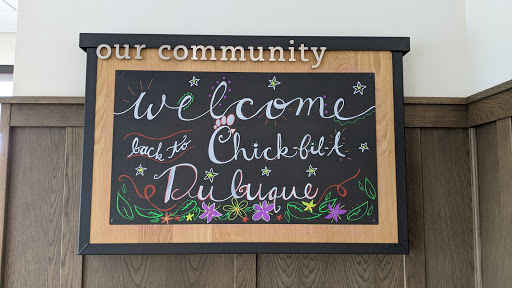 our community
Welcome
back to Chick-fil-A
Dubuque